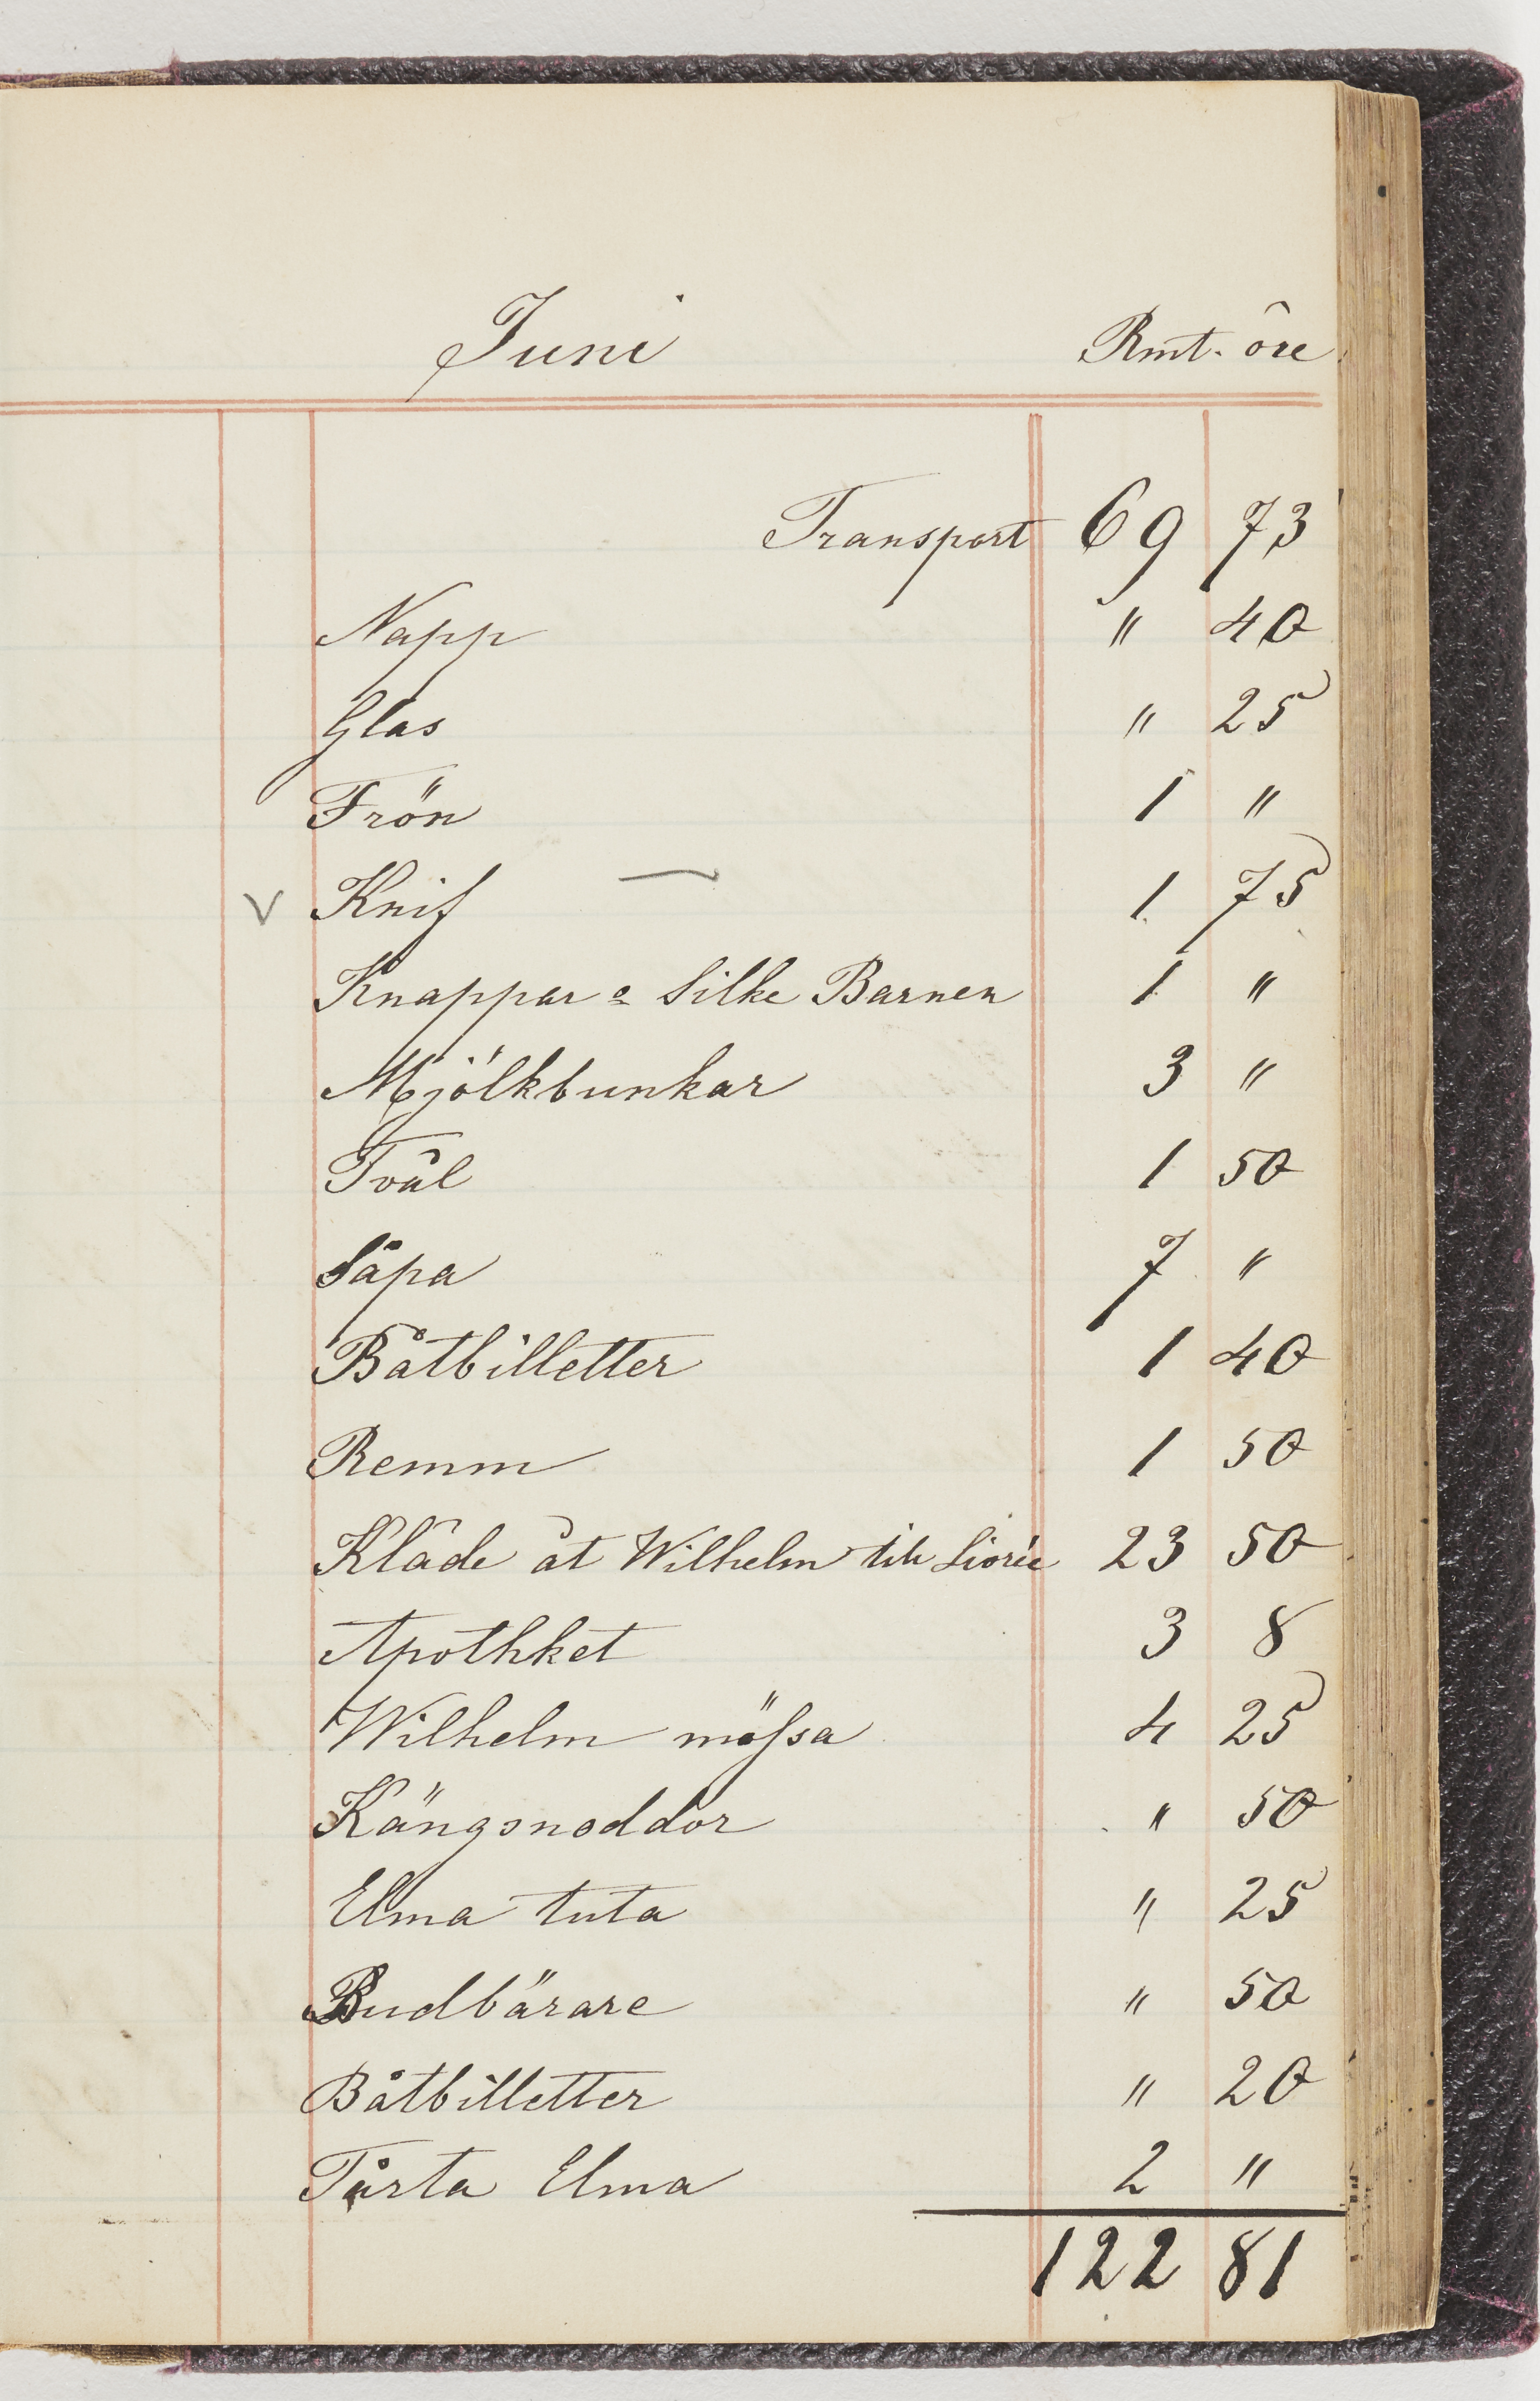 Juni Rmt. öre
Transport 69 73
Napp " 40
Glas " 25
Frön 1 "
v Knif — 1 75
Knappar o Silke Barnen 1 "
Mjölkbunkar 3 "
Tvål 1 50
Såpa 7 "
Båtbilletter 1 40
Remm 1 50
Kläde åt Wilhelm till Livrée 23 50
Apothket 3 8
Wilhelm mössa 4 25
Kängsnoddor " 50
Elma tuta " 25
Budbärare " 50
Båtbilletter " 20
Tårta Elma 2 "
122 81